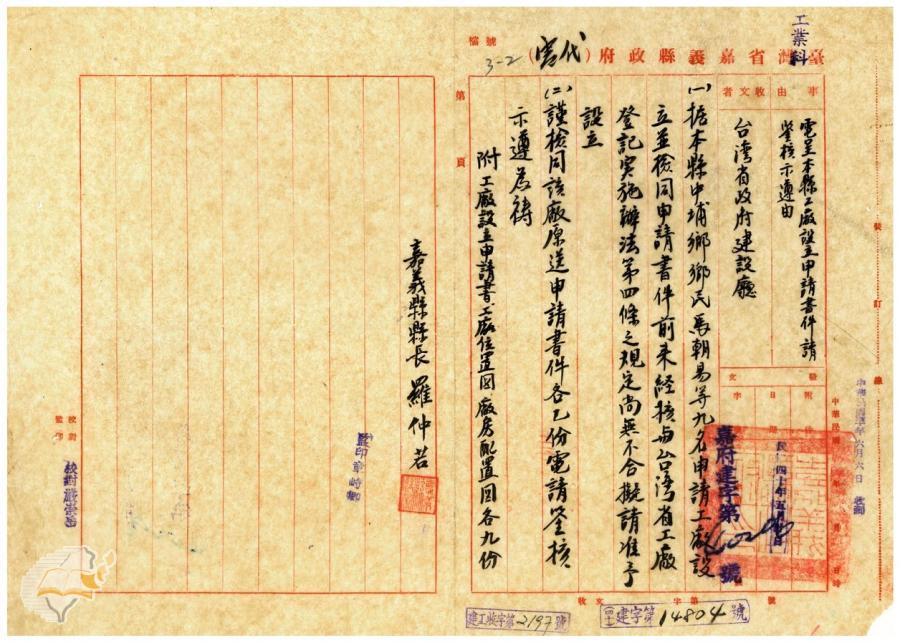 工業科
臺灣省嘉義縣政府（代電）
檔號
3-2
事由
收文者
電呈本縣工廠設立申請書件請
鑒核示遵由
台灣省政府建設廳
發文
附件
日期
字號
中華民國
四十年五月
嘉府建字第
號
六月六日
裝
訂
線
㈠据本縣中埔鄉鄉民馬朝易等九名申請工廠設
立並檢同申請書件前來經核与台灣省工廠
登記实施辦法第四條之規定尚無不合擬請准予
設立
㈡謹檢同該廠原送申請書件各乙份電請鑒核
示遵為禱
附工廠設立申請書、工廠位置図、廠房配置図各九份
嘉義縣縣長羅仲若
第
頁
監印章
校對
監印
校對嚴
收文
字第
號
建字第14804號
建工收字第2197號